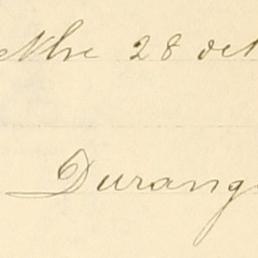 Nbre 28 de
Durang